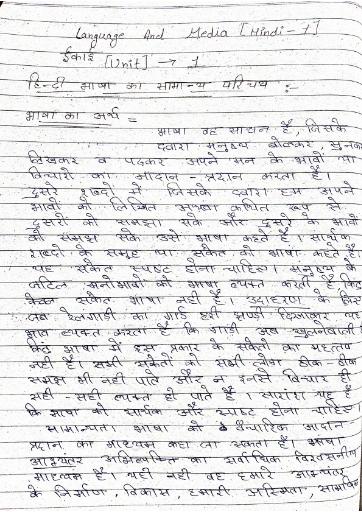 Language And Media [Hindi-1]
ईकाई [Unit] → 1
हिन्दी भाषा का सामान्य परिचय :-
भाषा का अर्थ =
भाषा वह साधन है, जिसके
द्वारा मनुष्य बोलकर, सुनकर,
लिखकर व पढ़कर अपने मन के भावों या
विचारों का आदान-प्रदान करता है।
दूसरे शब्दों में जिसके द्वारा हम अपने
भावों को लिखित अथवा कथित रूप से
दूसरों को समझा सके और दूसरे के भावों
को समझ सके उसे भाषा कहते है। सार्थक
शब्दों के समूह या संकेत को भाषा कहते है।
यह संकेत स्पष्ट होना चाहिए। मनुष्य के
जटिल मनोभावों को भाषा व्यक्त करती है, किंतु
केवल संकेत भाषा नहीं है। उदाहरण के लिए
जब रेलगाड़ी का गार्ड हरी झण्डी दिखाकर यह
भाव व्यक्त करता है कि गाड़ी अब खुलनेवाली
किंतु भाषा में इस प्रकार के संकेतों का महत्त्व
नहीं है। सभी संकेतों को सभी लोग ठीक ठीक
समझ भी नहीं पाते और न इनसे विचार ही
सही-सही व्यक्त हो पाते है। सारांश यह है
कि भाषा को सार्थक और स्पष्ट होना चाहिए
सामान्यतः भाषा को वैचारिक आदान
प्रदान का माध्यम कहा जा सकता है। भाषा
आभ्यंतर अभिव्यक्ति का सर्वाधिक विश्वसनीय
माध्यम है। यही नहीं वह हमारे आभ्यंतर
के निर्माण, विकास, हमारी अस्मिता, सामाजिक